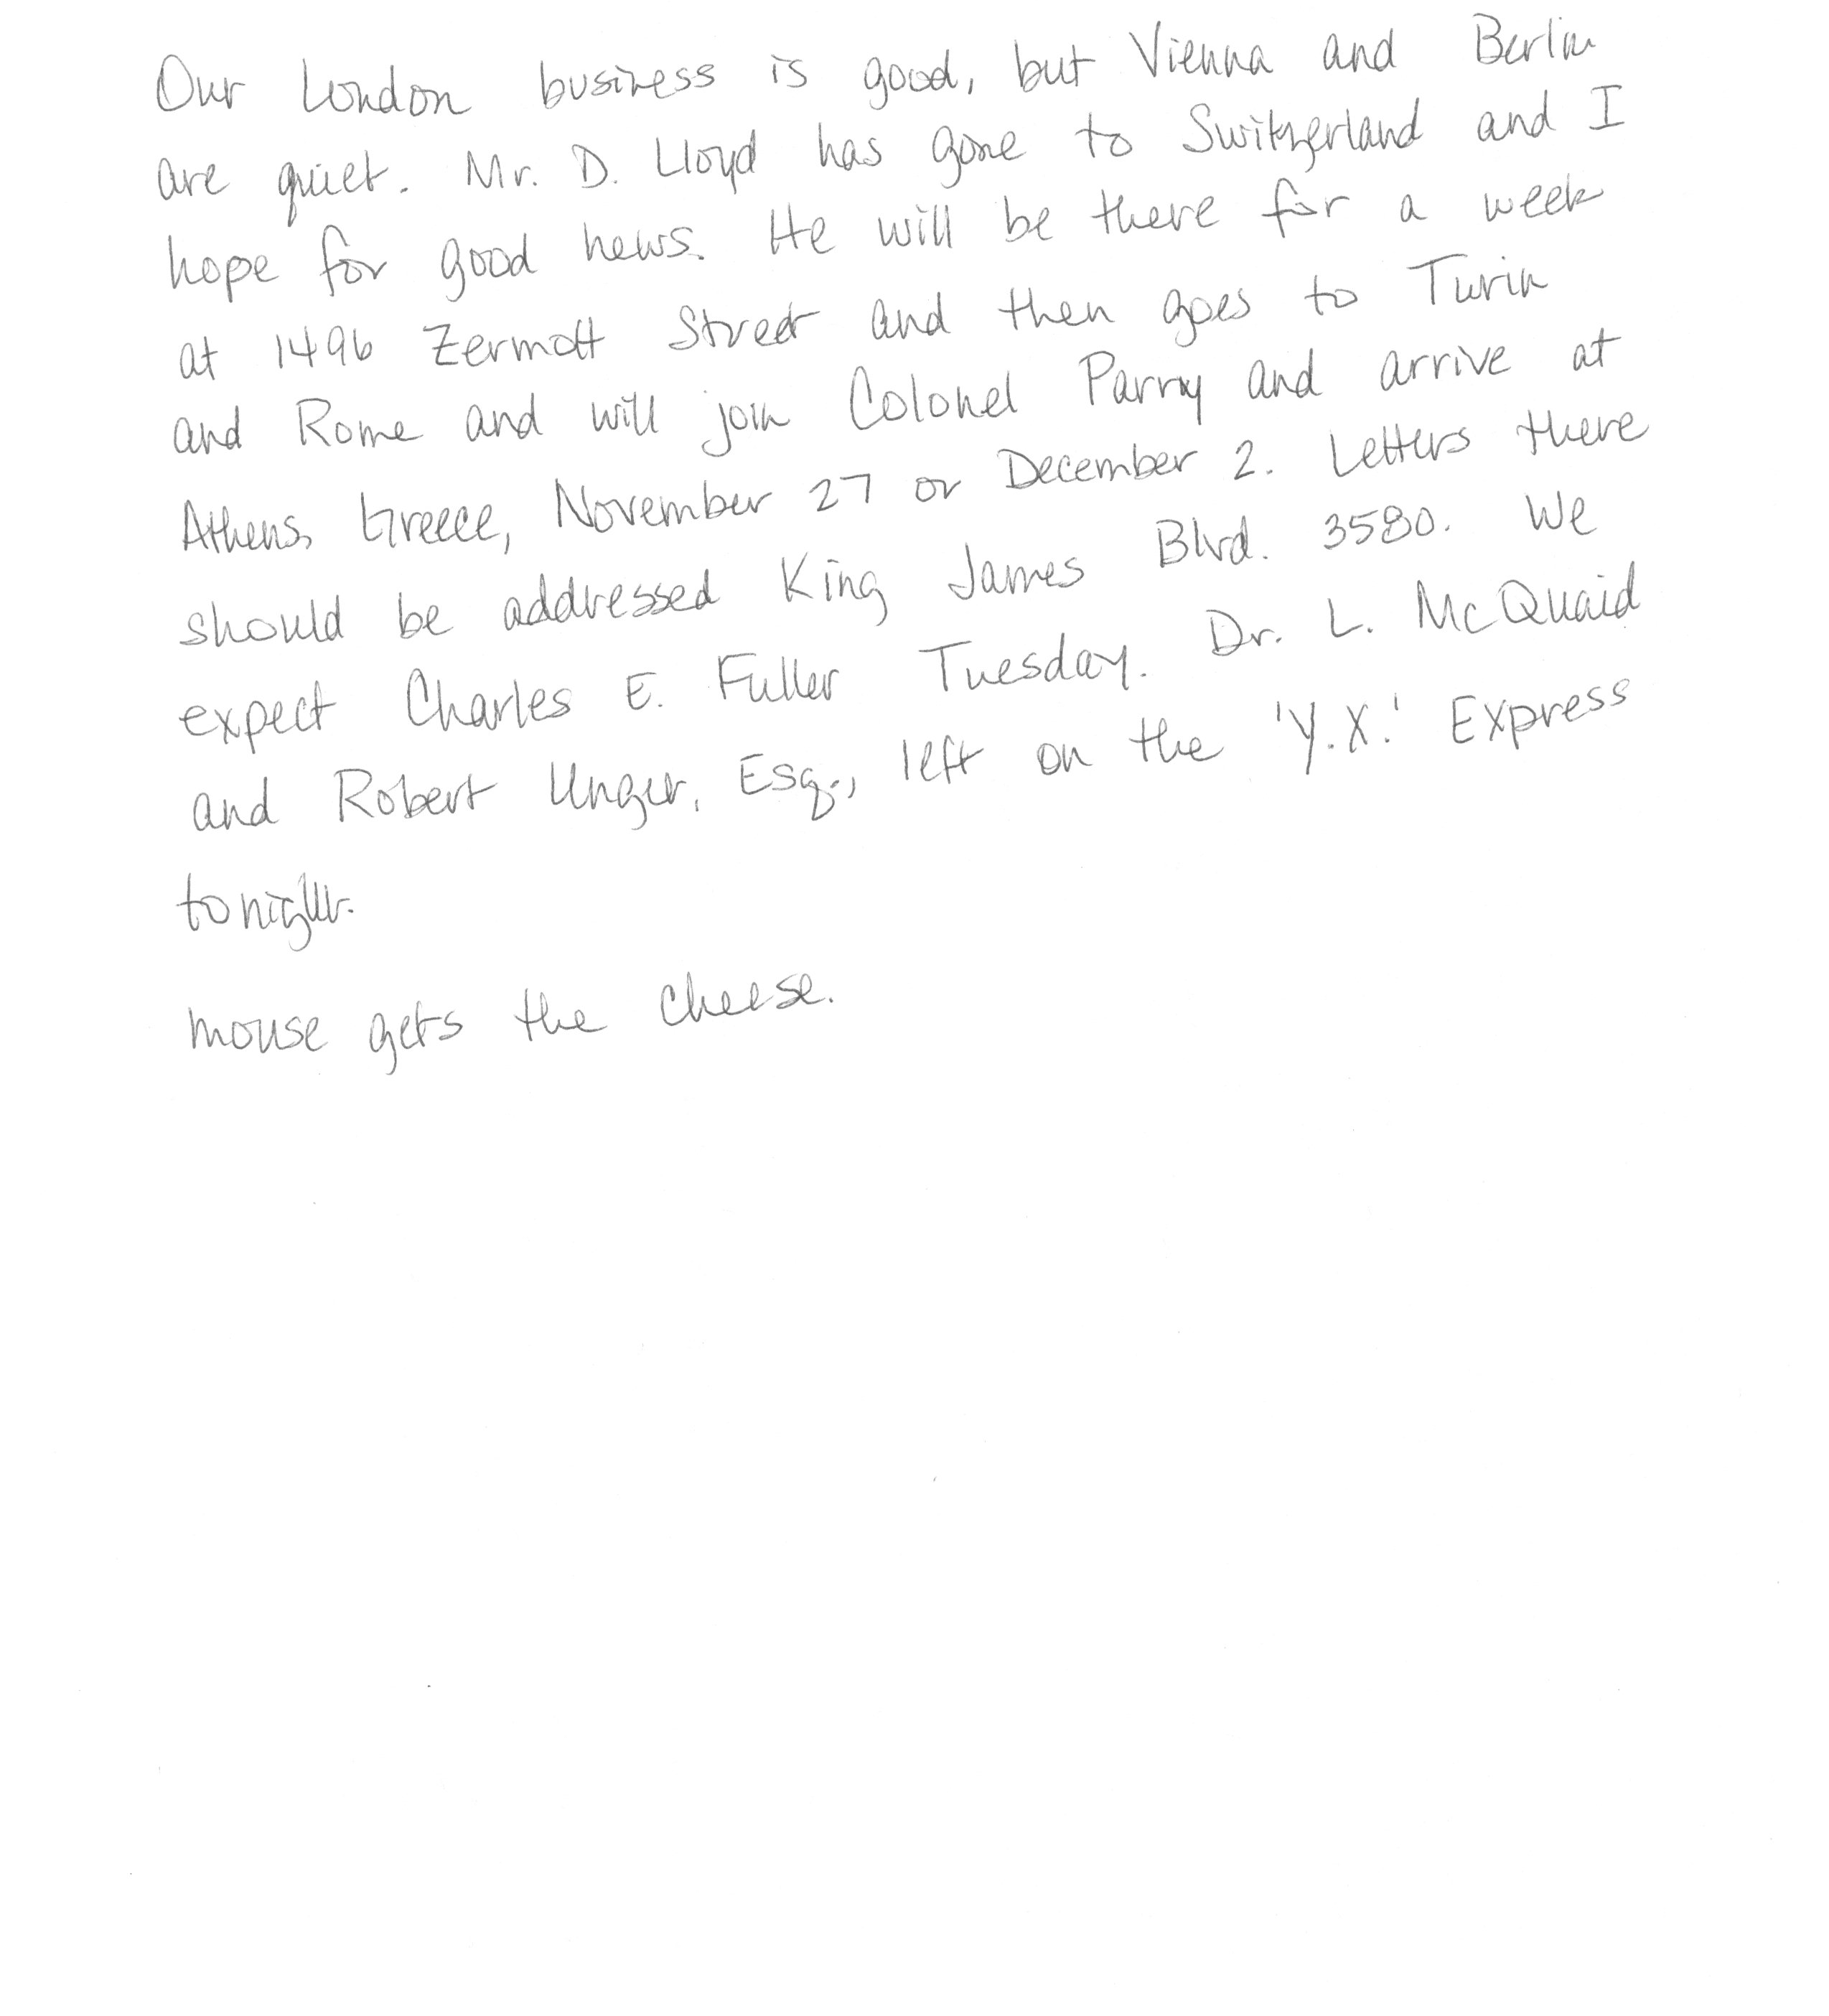 Our London business is good, but Vienna and Berlin
are quiet. Mr. D. Lloyd has gone to Switzerland and I
hope for good news. He will be there for a week
at 1496 Zermott Street and then goes to Turin
and Rome and will join Colonel Parry and arrive at
Athens, Greece, November 27 or December 2. Letters there
should be addressed King James Blvd. 3580. We
expect Charles E. Fuller Tuesday. Dr. L. McQuaid
and Robert Unger, Esq., left on the 'Y.X.' Express
tonight.
mouse gets the cheese.